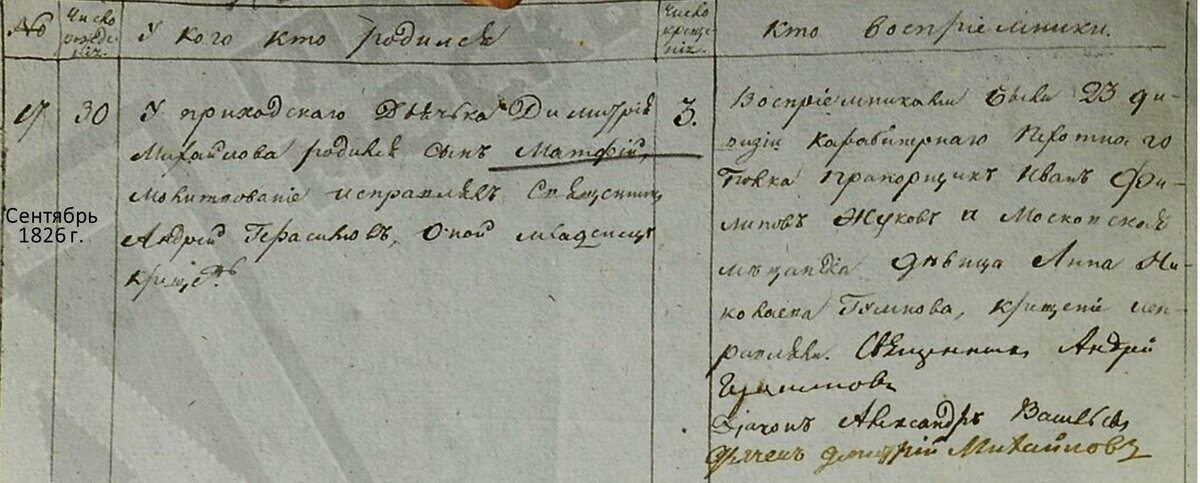 №
Число рожде-
нія.
У кого кто родился
Число
креще-
нія.
кто воспріемники.
17
30
У приходскаго Дьячька Димитрія
Михайлова родился сынъ Матфій,
молитвованіе исправлялъ Священникъ
Андрей Герасимовъ, Оной младенецъ
крещенъ
3.
Воспріемниками были 23 ди-
визіи карабинернаго Пехотнаго
Полка прапорщикъ Иванъ Фи-
липовъ Жуковъ и Московская
мѣщанка дѣвица Анна Ни-
колаева, крещеніе исп-
равляли. Священникъ Андрей
Герасимовъ
Диаконъ Александръ Васильевъ
Дмитрій Михайловъ
Сентябрь
1826 г.